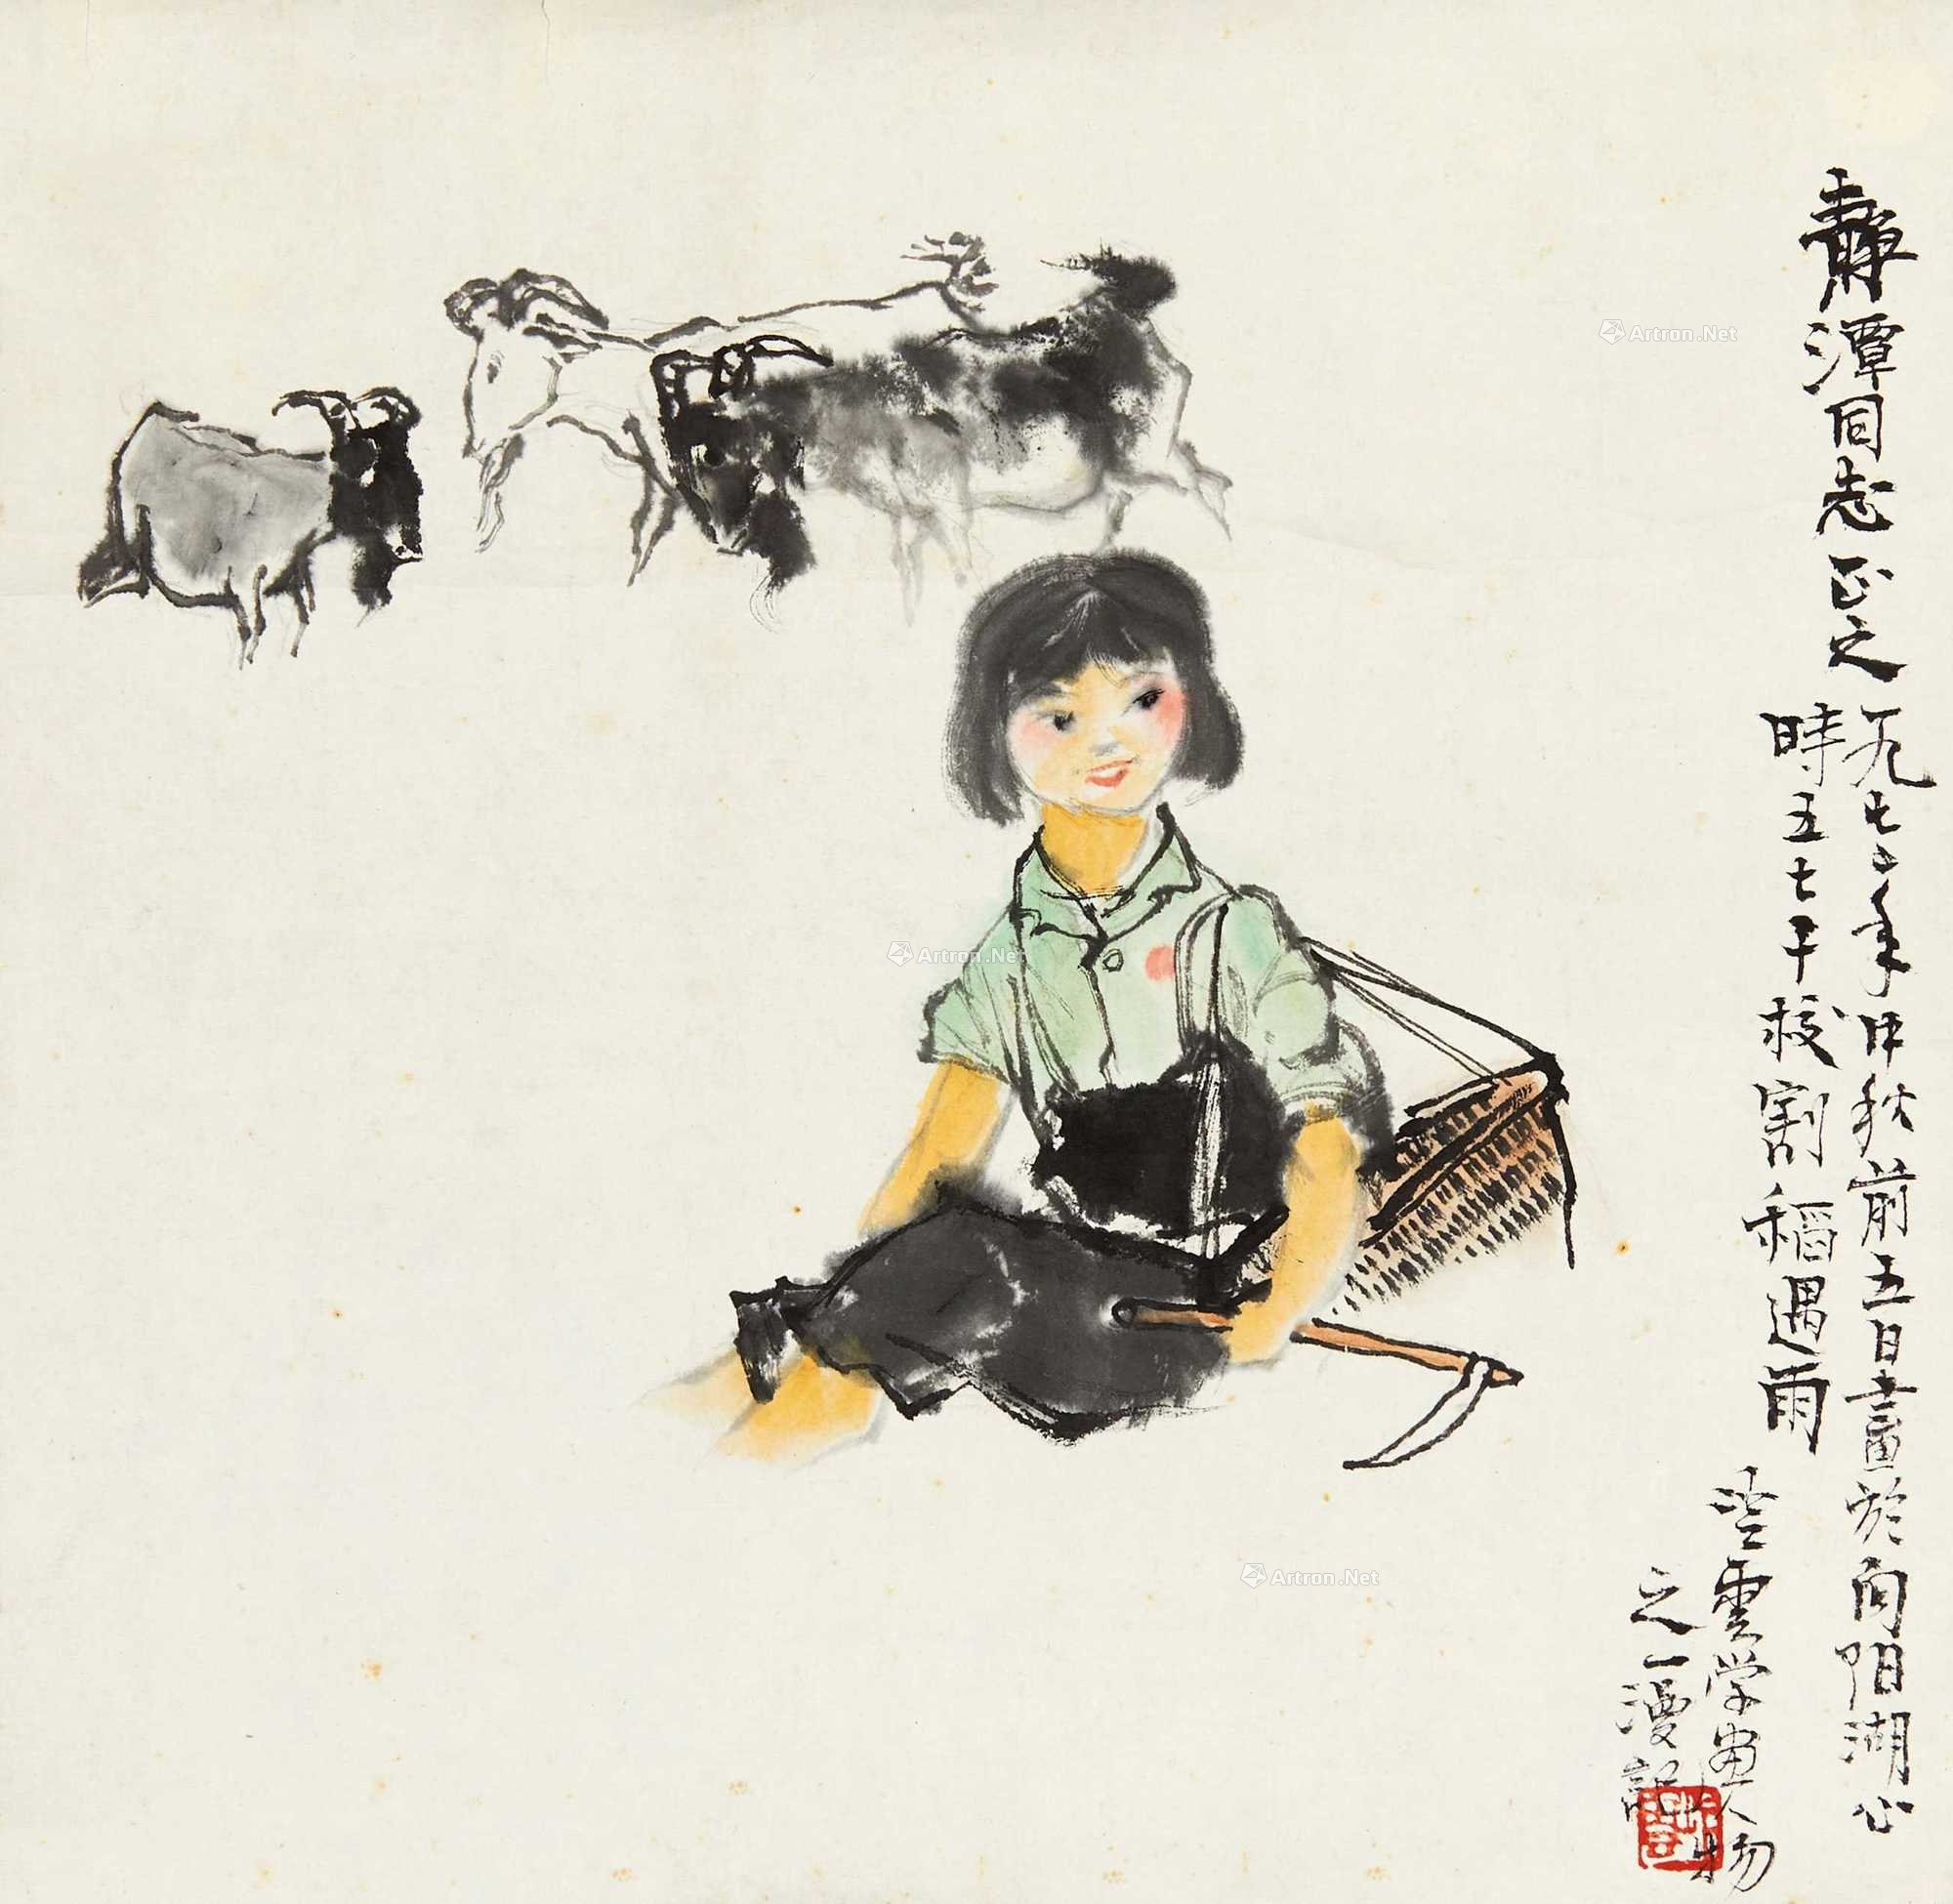 靜潭同志正之
一九七二年中秋前五日畫於向阳湖心
時五七干校割稻遇雨
雲学画人物
之一漫記
Artron.Net
Artron.Net
Artron.Net